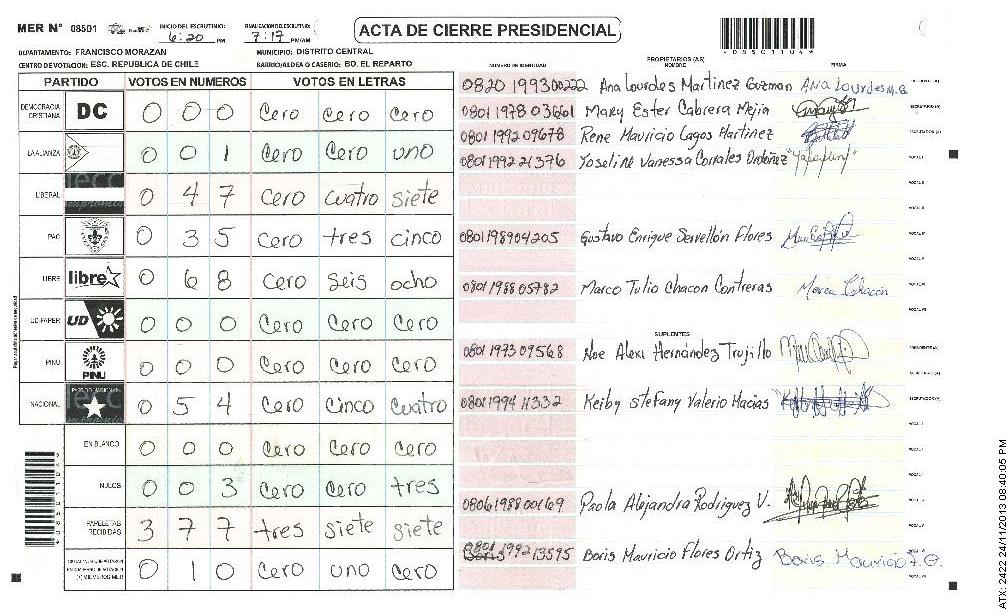 MER N° 08501 INICIO DEL ESCRUTINIO: 6:20 PM FINALIZACION DEL ESCRUTINIO: 7:17 PM/AM ACTA DE CIERRE PRESIDENCIAL
DEPARTAMENTO: FRANCISCO MORAZAN MUNICIPIO: DISTRITO CENTRAL
CENTRO DE VOTACION: ESC. REPUBLICA DE CHILE BARRIO/ALDEA O CASERIO: BO. EL REPARTO
PARTIDO VOTOS EN NUMEROS VOTOS EN LETRAS
DEMOCRACIA CRISTIANA DC 0 0 0 Cero Cero Cero
LA ALIANZA 0 0 1 Cero Cero uno
LIBERAL 0 4 7 Cero cuatro siete
PAC 0 3 5 Cero tres cinco
LIBRE libre 0 6 8 Cero seis ocho
UD-FAPER UD 0 0 0 Cero Cero Cero
PINU PINU 0 0 0 Cero Cero Cero
NACIONAL 0 5 4 Cero Cinco Cuatro
EN BLANCO 0 0 0 Cero Cero Cero
NULOS 0 0 3 Cero Cero tres
PAPELETAS RECIBIDAS 3 7 7 tres siete siete
0 1 0 Cero uno Cero
PROPIETARIOS (AS)
NUMERO DE IDENTIDAD NOMBRE FIRMA
0820 1993 00222 Ana Lourdes Martinez Guzman Ana Lourdes M. G.
0801 1978 03661 Mary Ester Cabrera Mejia SECRETARIO (A)
0801 1992 09678 Rene Mauricio Lagos Martinez ESCRUTADOR (A)
0801 1992 21376 Yoseline Vanessa Corrales Ordoñez
0801 1989 04205 Gustavo Enrique Servellón Flores
0801 1988 05782 Marco Tulio Chacon Contreras Marco Chacon
SUPLENTES
0801 1973 09568 Noe Alexi Hernández Trujillo
0801 1994 11332 Keiby Stefany Valerio Macias ESCRUTADOR (A)
0806 1988 00169 Paola Alejandra Rodriguez V.
0801 1992 13595 Boris Mauricio Flores Ortiz Boris Mauricio F. O.
ATX: 2422 24/11/2013 08:40:05 PM